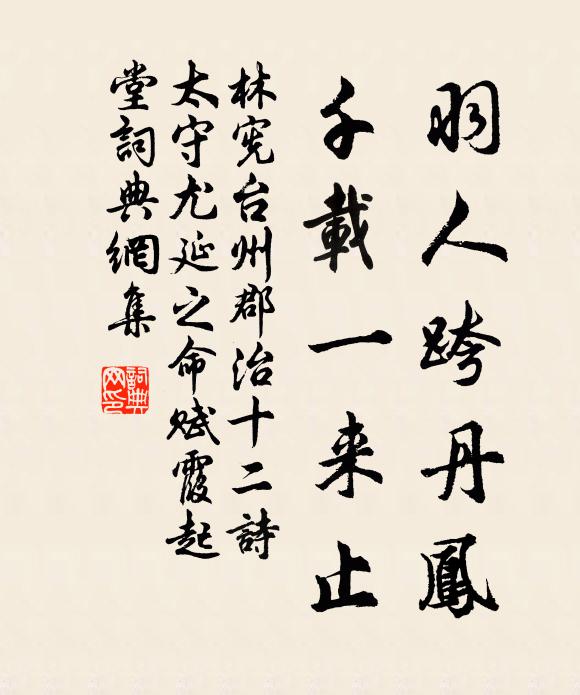 羽人跨丹鳳
千載一来止
林宪台州郡治十二詩
太守尤延之命赋霞起
堂詞典網集
詞典网印